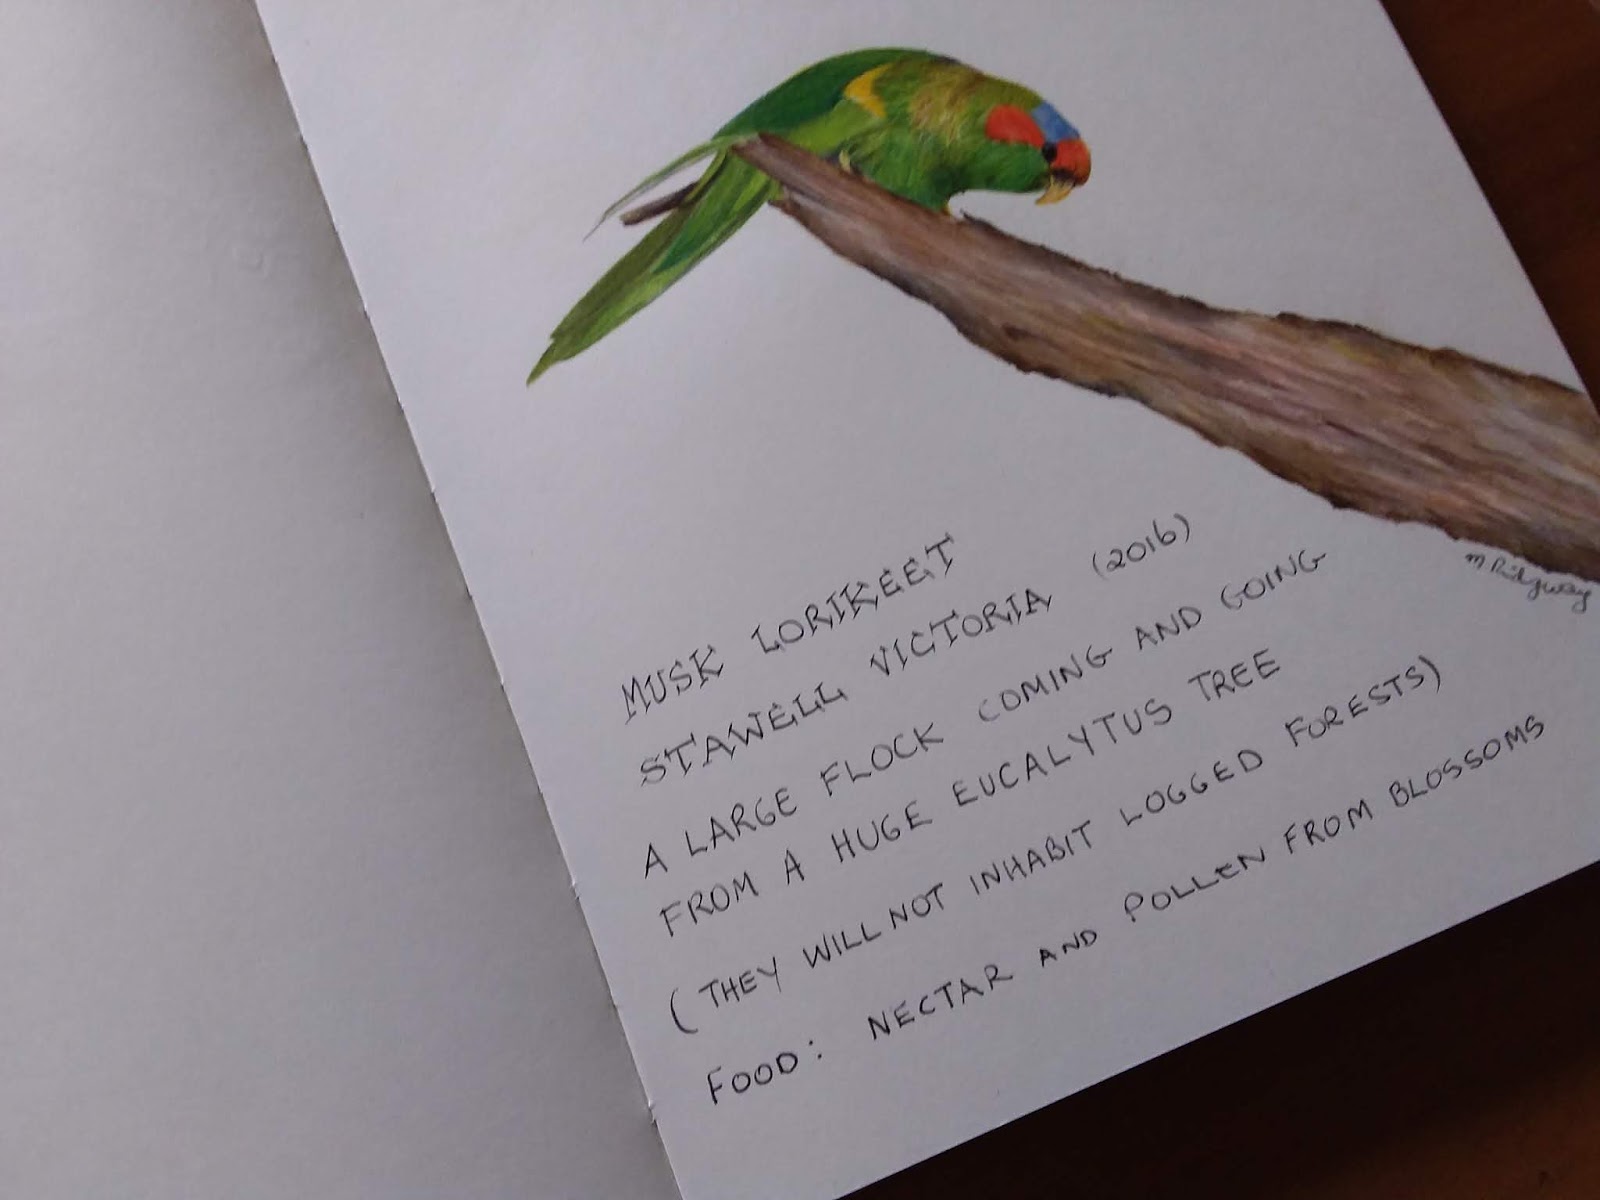 M Ridgway
MUSK LORIKEET
STAWELL VICTORIA (2016)
A LARGE FLOCK COMING AND GOING
FROM A HUGE EUCALYTUS TREE
(THEY WILL NOT INHABIT LOGGED FORESTS)
FOOD: NECTAR AND POLLEN FROM BLOSSOMS